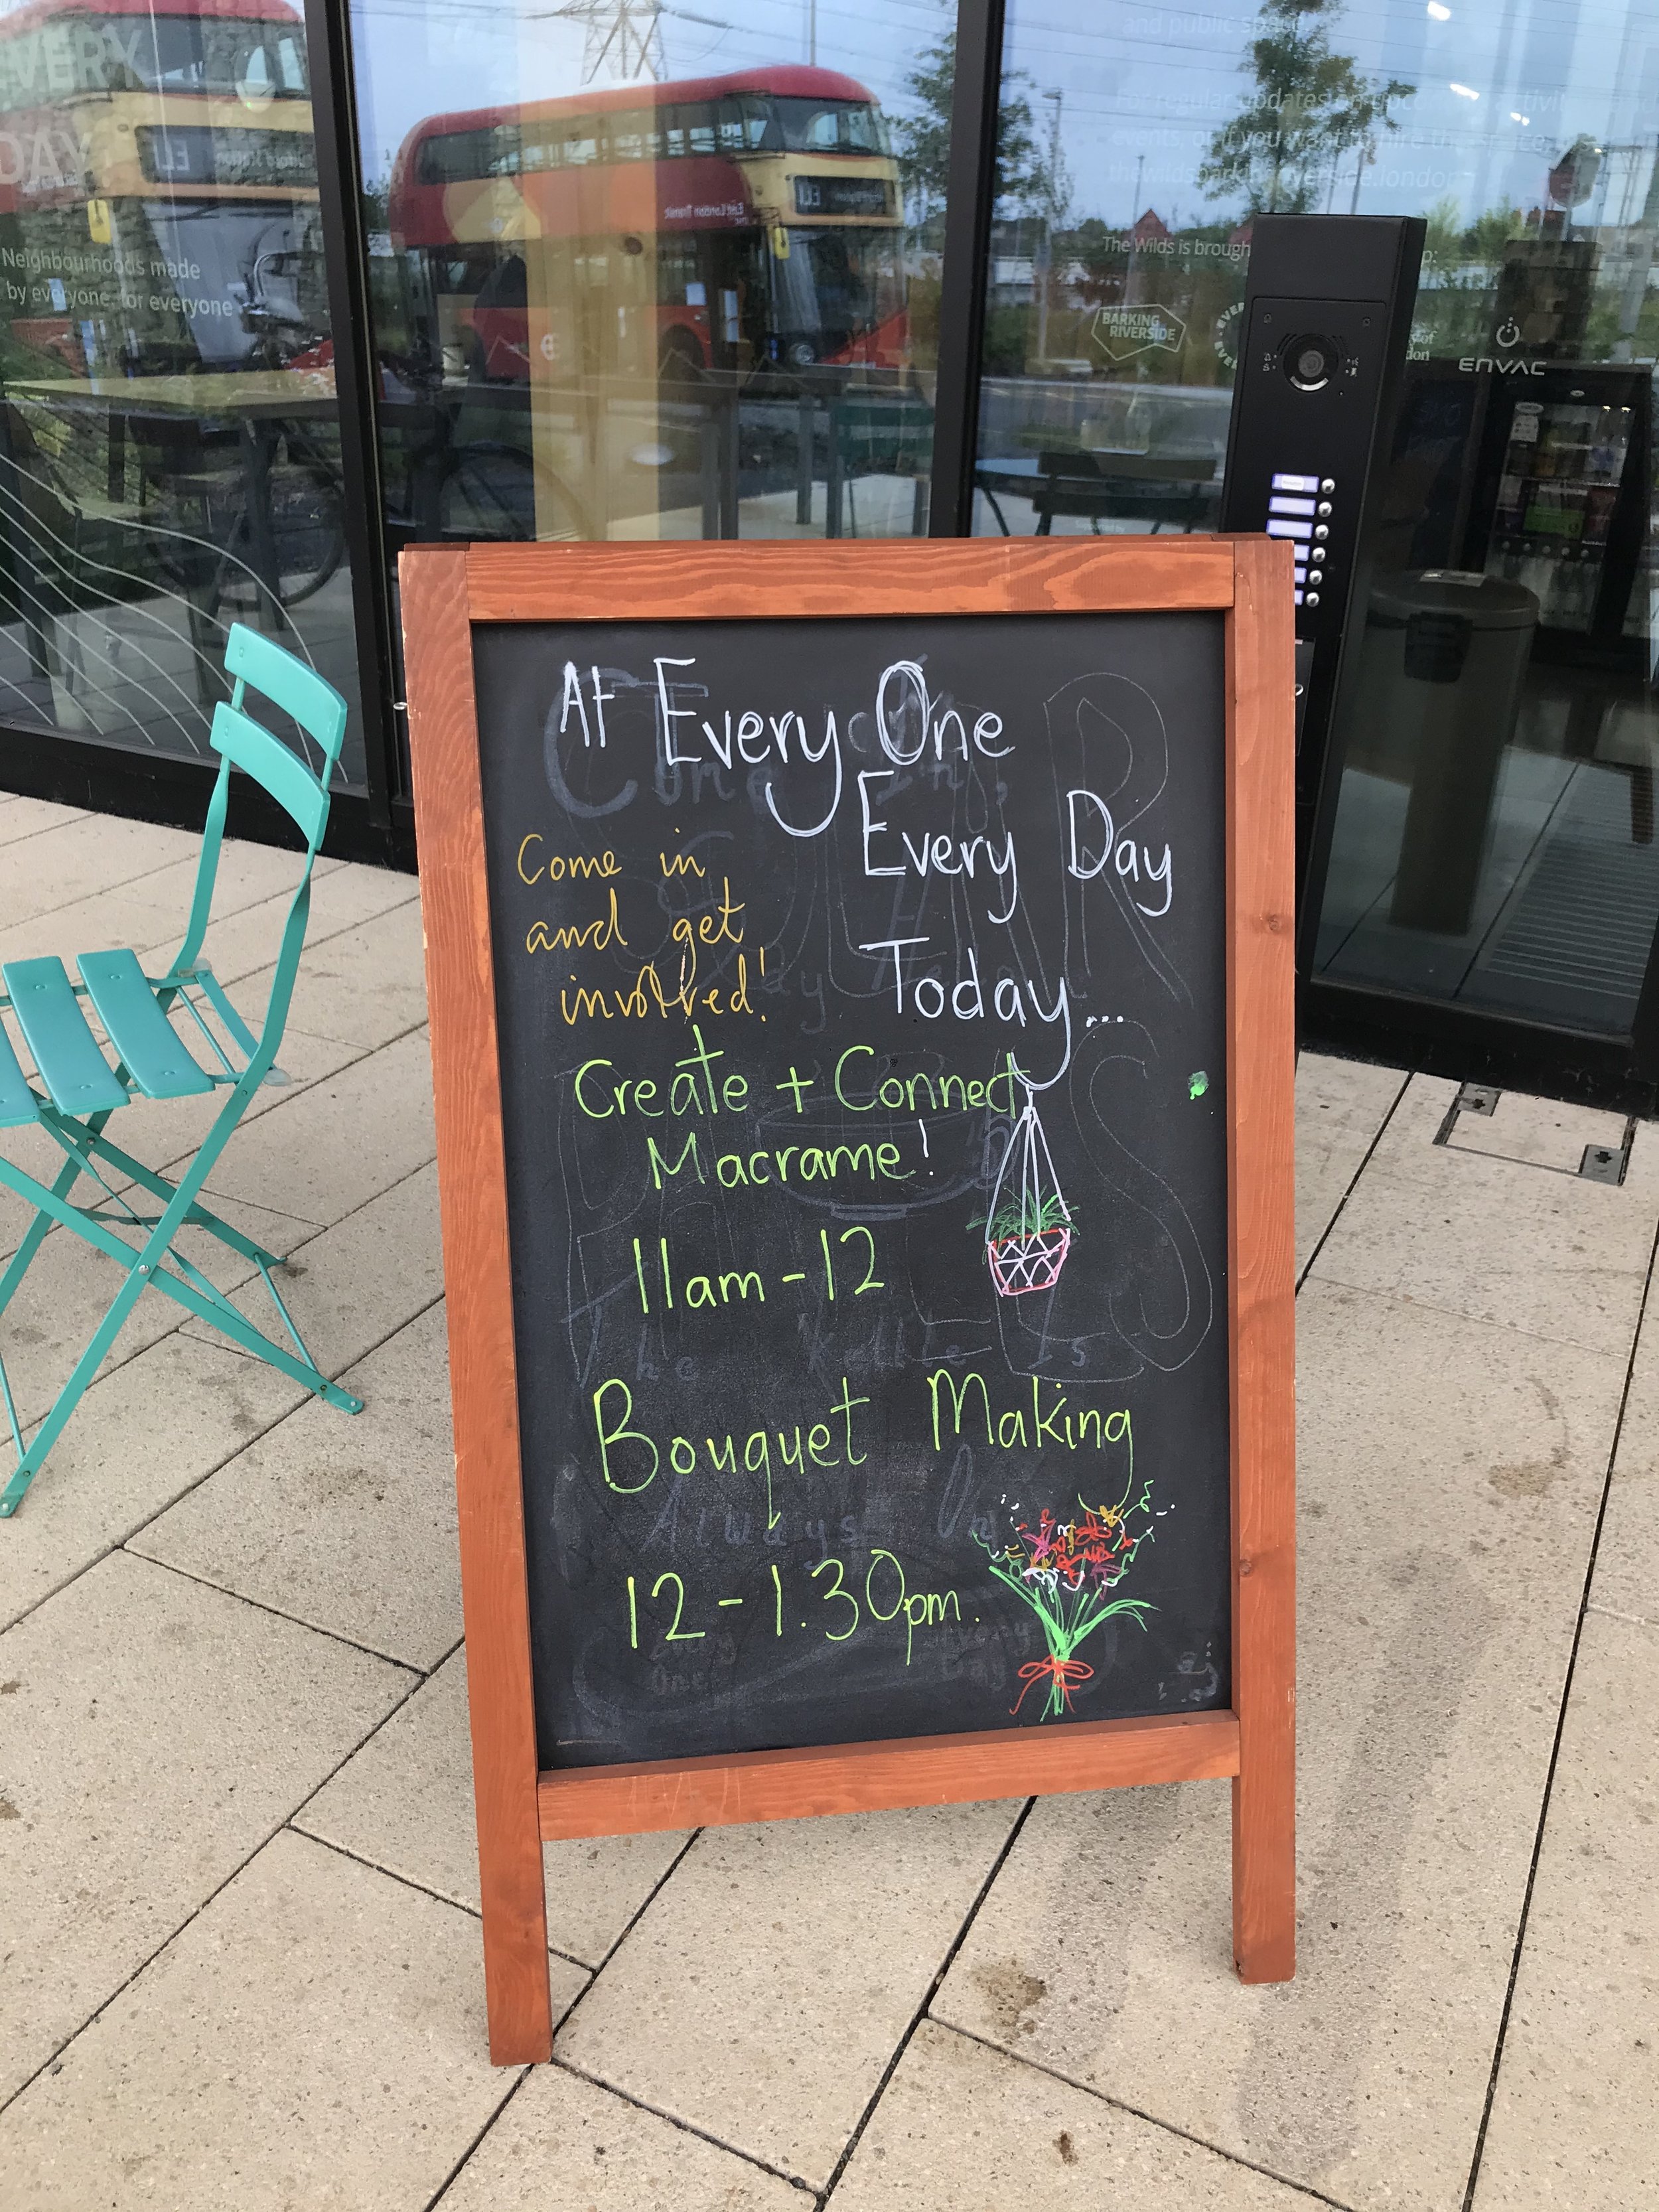 EVERY
DAY
Neighbourhoods made
by everyone, for everyone
East London Transit
EL1
and public space
For regular updates on
events, or if you want to hire the space
The Wilds is brough
BARKING
RIVERSIDE
ENVAC
At Every One
Every Day
Come in
and get
involved!
Today...
Create + Connect
Macrame!
11am - 12
The Kettle Is
Bouquet Making
Always On
12 - 1.30pm.
Every
One
Every
Day